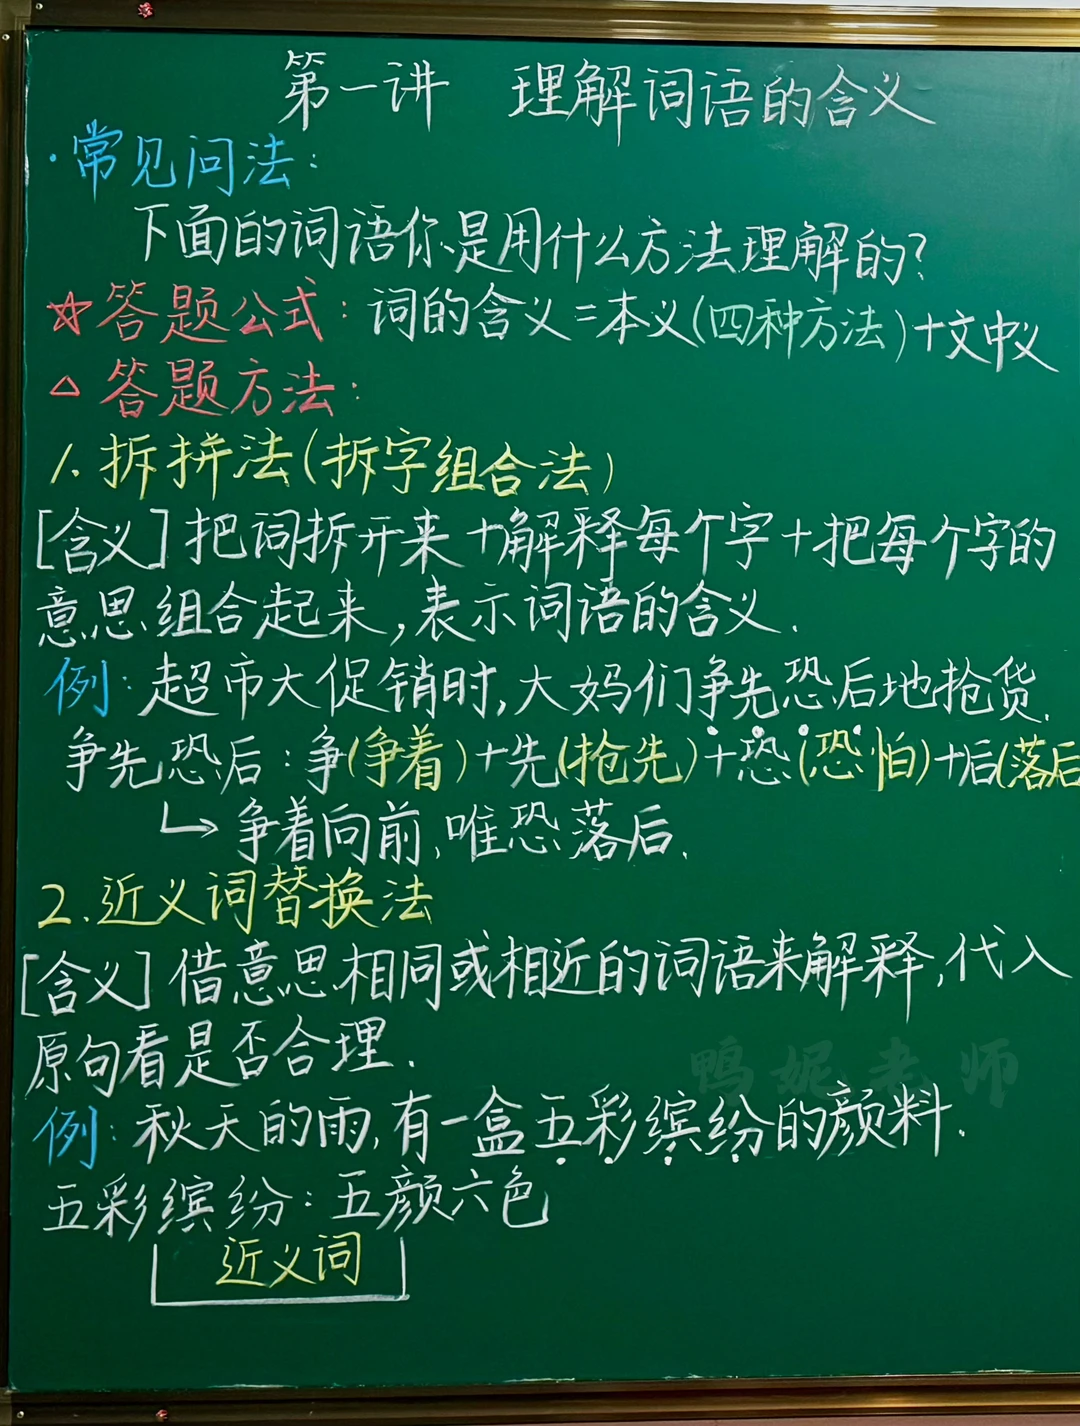 第一讲 理解词语的含义
·常见问法:
下面的词语你是用什么方法理解的?
☆答题公式:词的含义=本义(四种方法)+文中义
△答题方法:
1.拆拼法(拆字组合法)
[含义]把词拆开来+解释每个字+把每个字的
意思组合起来,表示词语的含义.
例:超市大促销时,大妈们争先恐后地抢货.
争先恐后:争(争着)+先(抢先)+恐(恐怕)+后(落后
↳争着向前,唯恐落后.
2.近义词替换法
[含义]借意思相同或相近的词语来解释,代入
原句看是否合理.
鸭妮老师
例:秋天的雨,有一盒五彩缤纷的颜料.
五彩缤纷:五颜六色
近义词